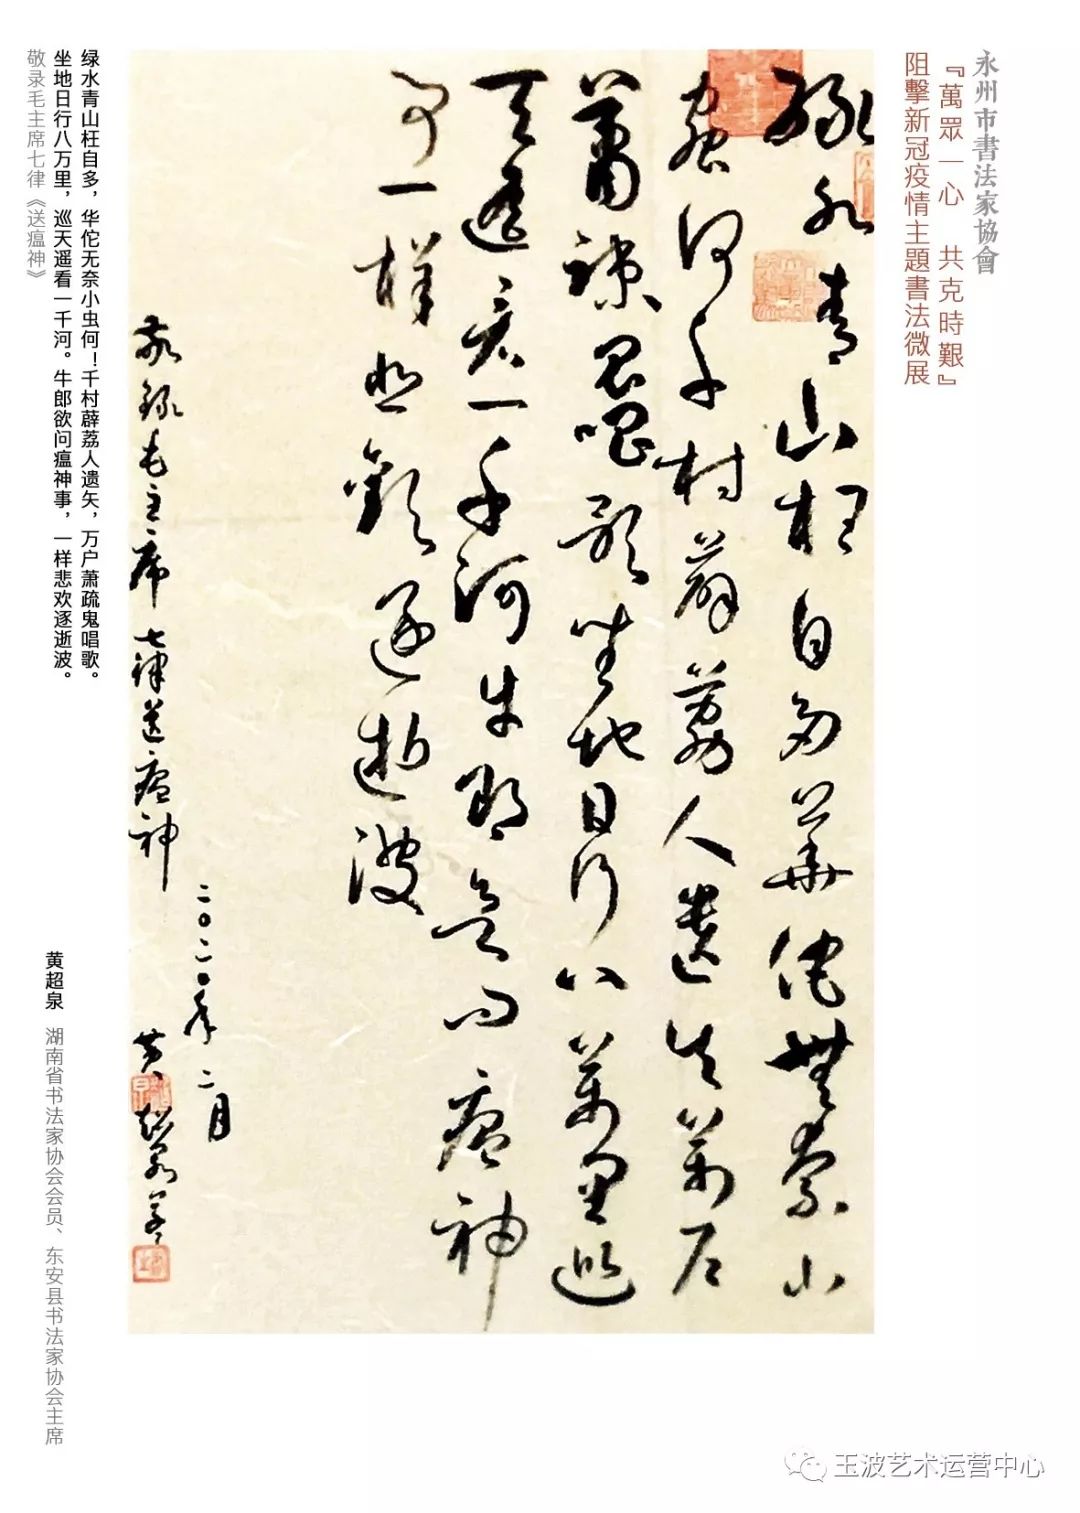 永州市書法家協會
『萬眾一心　共克時艱』
阻擊新冠疫情主題書法微展
綠水青山枉自多華佗無奈小
蟲何千村薜荔人遺矢萬戶
蕭疏鬼唱歌坐地日行八萬里巡
天遙看一千河牛郎欲問瘟神
事一樣悲歡逐逝波
敬錄毛主席七律送瘟神
二〇二〇年二月
黄超泉書
绿水青山枉自多，华佗无奈小虫何！千村薜荔人遗矢，万户萧疏鬼唱歌。
坐地日行八万里，巡天遥看一千河。牛郎欲问瘟神事，一样悲欢逐逝波。
敬录毛主席七律《送瘟神》
黄超泉　湖南省书法家协会会员、东安县书法家协会主席
玉波艺术运营中心